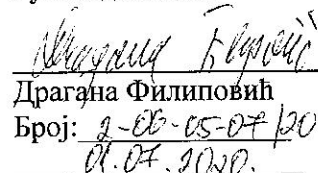 Драгана Филиповић
Број: 2-06-05-07/20
01.07.2020.